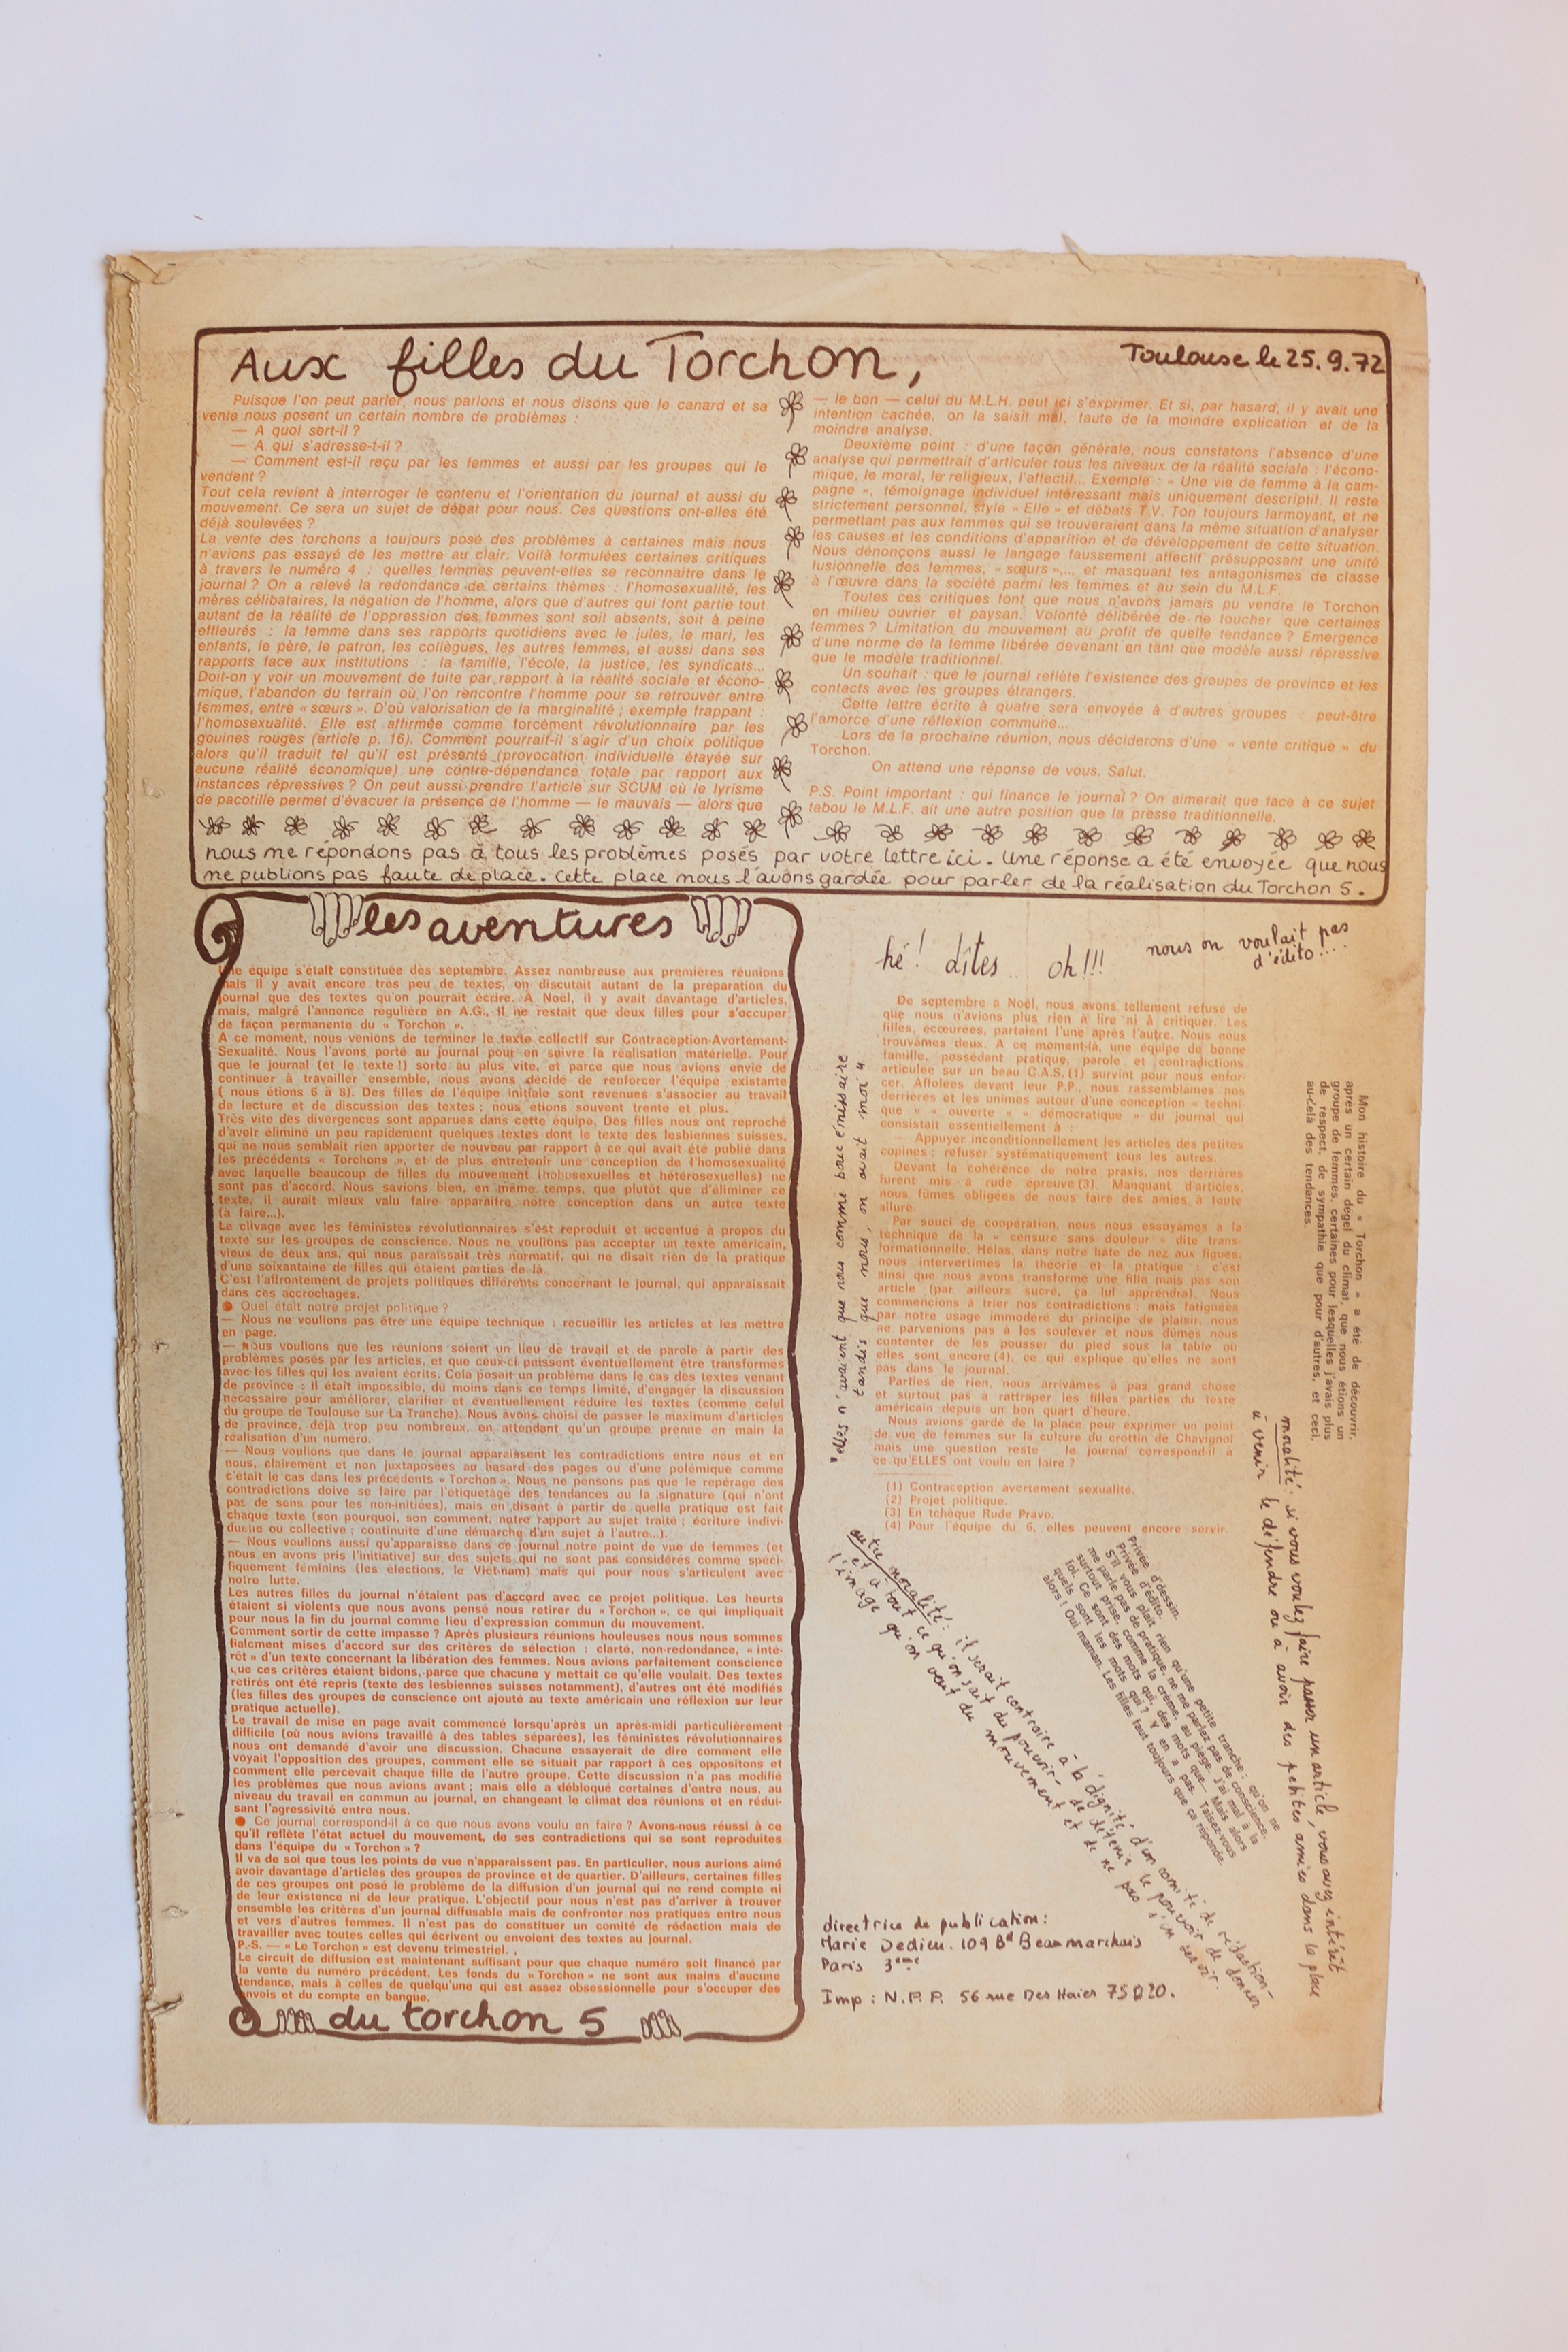 Aux filles du Torchon,
Toulouse le 25.9.72
Puisque l'on peut parler, nous parlons et nous disons que le canard et sa
vente nous posent un certain nombre de problèmes :
— A quoi sert-il ?
— A qui s'adresse-t-il ?
— Comment est-il reçu par les femmes et aussi par les groupes qui le
vendent ?
Tout cela revient à interroger le contenu et l'orientation du journal et aussi du
mouvement. Ce sera un sujet de débat pour nous. Ces questions ont-elles été
déjà soulevées ?
La vente des torchons a toujours posé des problèmes à certaines mais nous
n'avions pas essayé de les mettre au clair. Voilà formulées certaines critiques
à travers le numéro 4 : quelles femmes peuvent-elles se reconnaître dans le
journal ? On a relevé la redondance de certains thèmes : l'homosexualité, les
mères célibataires, la négation de l'homme, alors que d'autres qui font partie tout
autant de la réalité de l'oppression des femmes sont soit absents, soit à peine
effleurés : la femme dans ses rapports quotidiens avec le jules, le mari, les
enfants, le père, le patron, les collègues, les autres femmes, et aussi dans ses
rapports face aux institutions : la famille, l'école, la justice, les syndicats...
Doit-on y voir un mouvement de fuite par rapport à la réalité sociale et écono-
mique, l'abandon du terrain où l'on rencontre l'homme pour se retrouver entre
femmes, entre « sœurs ». D'où valorisation de la marginalité ; exemple frappant :
l'homosexualité. Elle est affirmée comme forcément révolutionnaire par les
gouines rouges (article p. 16). Comment pourrait-il s'agir d'un choix politique
alors qu'il traduit tel qu'il est présenté (provocation individuelle étayée sur
aucune réalité économique) une contre-dépendance totale par rapport aux
instances répressives ? On peut aussi prendre l'article sur SCUM où le lyrisme
de pacotille permet d'évacuer la présence de l'homme — le mauvais — alors que
— le bon — celui du M.L.H. peut ici s'exprimer. Et si, par hasard, il y avait une
intention cachée, on la saisit mal, faute de la moindre explication et de la
moindre analyse.
Deuxième point : d'une façon générale, nous constatons l'absence d'une
analyse qui permettrait d'articuler tous les niveaux de la réalité sociale : l'écono-
mique, le moral, le religieux, l'affectif... Exemple : « Une vie de femme à la cam-
pagne », témoignage individuel intéressant mais uniquement descriptif. Il reste
strictement personnel, style « Elle » et débats T.V. Ton toujours larmoyant, et ne
permettant pas aux femmes qui se trouveraient dans la même situation d'analyser
les causes et les conditions d'apparition et de développement de cette situation.
Nous dénonçons aussi le langage faussement affectif présupposant une unité
fusionnelle des femmes, « sœurs »,... et masquant les antagonismes de classe
à l'œuvre dans la société parmi les femmes et au sein du M.L.F.
Toutes ces critiques font que nous n'avons jamais pu vendre le Torchon
en milieu ouvrier et paysan. Volonté délibérée de ne toucher que certaines
femmes ? Limitation du mouvement au profit de quelle tendance ? Emergence
d'une norme de la femme libérée devenant en tant que modèle aussi répressive
que le modèle traditionnel.
Un souhait : que le journal reflète l'existence des groupes de province et les
contacts avec les groupes étrangers.
Cette lettre écrite à quatre sera envoyée à d'autres groupes : peut-être
l'amorce d'une réflexion commune...
Lors de la prochaine réunion, nous déciderons d'une « vente critique » du
Torchon.
On attend une réponse de vous. Salut.
P.S. Point important : qui finance le journal ? On aimerait que face à ce sujet
tabou le M.L.F. ait une autre position que la presse traditionnelle.
nous ne répondons pas à tous les problèmes posés par votre lettre ici. Une réponse a été envoyée que nous
ne publions pas faute de place. Cette place nous l'avons gardée pour parler de la réalisation du Torchon 5.
les aventures
Une équipe s'était constituée dès septembre. Assez nombreuse aux premières réunions
mais il y avait encore très peu de textes, on discutait autant de la préparation du
journal que des textes qu'on pourrait écrire. A Noël, il y avait davantage d'articles,
mais, malgré l'annonce régulière en A.G., il ne restait que deux filles pour s'occuper
de façon permanente du « Torchon ».
A ce moment, nous venions de terminer le texte collectif sur Contraception-Avortement-
Sexualité. Nous l'avons porté au journal pour en suivre la réalisation matérielle. Pour
que le journal (et le texte !) sorte au plus vite, et parce que nous avions envie de
continuer à travailler ensemble, nous avons décidé de renforcer l'équipe existante
( nous étions 6 à 8). Des filles de l'équipe initiale sont revenues s'associer au travail
de lecture et de discussion des textes ; nous étions souvent trente et plus.
Très vite des divergences sont apparues dans cette équipe. Des filles nous ont reproché
d'avoir éliminé un peu rapidement quelques textes dont le texte des lesbiennes suisses,
qui ne nous semblait rien apporter de nouveau par rapport à ce qui avait été publié dans
les précédents « Torchons », et de plus entretenir une conception de l'homosexualité
avec laquelle beaucoup de filles du mouvement (hobosexuelles et hétérosexuelles) ne
sont pas d'accord. Nous savions bien, en même temps, que plutôt que d'éliminer ce
texte, il aurait mieux valu faire apparaître notre conception dans un autre texte
(à faire...).
Le clivage avec les féministes révolutionnaires s'est reproduit et accentué à propos du
texte sur les groupes de conscience. Nous ne voulions pas accepter un texte américain,
vieux de deux ans, qui nous paraissait très normatif, qui ne disait rien de la pratique
d'une soixantaine de filles qui étaient parties de là.
C'est l'affrontement de projets politiques différents concernant le journal, qui apparaissait
dans ces accrochages.
● Quel était notre projet politique ?
— Nous ne voulions pas être une équipe technique : recueillir les articles et les mettre
en page.
— nous voulions que les réunions soient un lieu de travail et de parole à partir des
problèmes posés par les articles, et que ceux-ci puissent éventuellement être transformés
avec les filles qui les avaient écrits. Cela posait un problème dans le cas des textes venant
de province : il était impossible, du moins dans ce temps limité, d'engager la discussion
nécessaire pour améliorer, clarifier et éventuellement réduire les textes (comme celui
du groupe de Toulouse sur La Tranche). Nous avons choisi de passer le maximum d'articles
de province, déjà trop peu nombreux, en attendant qu'un groupe prenne en main la
réalisation d'un numéro.
— Nous voulions que dans le journal apparaissent les contradictions entre nous et en
nous, clairement et non juxtaposées au hasard des pages ou d'une polémique comme
c'était le cas dans les précédents « Torchon ». Nous ne pensons pas que le repérage des
contradictions doive se faire par l'étiquetage des tendances ou la signature (qui n'ont
pas de sens pour les non-initiées), mais en disant à partir de quelle pratique est fait
chaque texte (son pourquoi, son comment, notre rapport au sujet traité ; écriture indivi-
duelle ou collective ; continuité d'une démarche d'un sujet à l'autre...).
— Nous voulions aussi qu'apparaisse dans ce journal notre point de vue de femmes (et
nous en avons pris l'initiative) sur des sujets qui ne sont pas considérés comme spéci-
fiquement féminins (les élections, le Viet-nam) mais qui pour nous s'articulent avec
notre lutte.
Les autres filles du journal n'étaient pas d'accord avec ce projet politique. Les heurts
étaient si violents que nous avons pensé nous retirer du « Torchon », ce qui impliquait
pour nous la fin du journal comme lieu d'expression commun du mouvement.
Comment sortir de cette impasse ? Après plusieurs réunions houleuses nous nous sommes
fialement mises d'accord sur des critères de sélection : clarté, non-redondance, « inté-
rêt » d'un texte concernant la libération des femmes. Nous avions parfaitement conscience
que ces critères étaient bidons, parce que chacune y mettait ce qu'elle voulait. Des textes
retirés ont été repris (texte des lesbiennes suisses notamment), d'autres ont été modifiés
(les filles des groupes de conscience ont ajouté au texte américain une réflexion sur leur
pratique actuelle).
Le travail de mise en page avait commencé lorsqu'après un après-midi particulièrement
difficile (où nous avions travaillé à des tables séparées), les féministes révolutionnaires
nous ont demandé d'avoir une discussion. Chacune essayerait de dire comment elle
voyait l'opposition des groupes, comment elle se situait par rapport à ces oppositons et
comment elle percevait chaque fille de l'autre groupe. Cette discussion n'a pas modifié
les problèmes que nous avions avant ; mais elle a débloqué certaines d'entre nous, au
niveau du travail en commun au journal, en changeant le climat des réunions et en rédui-
sant l'agressivité entre nous.
● Ce journal correspond-il à ce que nous avons voulu en faire ? Avons-nous réussi à ce
qu'il reflète l'état actuel du mouvement, de ses contradictions qui se sont reproduites
dans l'équipe du « Torchon » ?
Il va de soi que tous les points de vue n'apparaissent pas. En particulier, nous aurions aimé
avoir davantage d'articles des groupes de province et de quartier. D'ailleurs, certaines filles
de ces groupes ont posé le problème de la diffusion d'un journal qui ne rend compte ni
de leur existence ni de leur pratique. L'objectif pour nous n'est pas d'arriver à trouver
ensemble les critères d'un journal diffusable mais de confronter nos pratiques entre nous
et vers d'autres femmes. Il n'est pas de constituer un comité de rédaction mais de
travailler avec toutes celles qui écrivent ou envoient des textes au journal.
P.-S. — « Le Torchon » est devenu trimestriel.
Le circuit de diffusion est maintenant suffisant pour que chaque numéro soit financé par
la vente du numéro précédent. Les fonds du « Torchon » ne sont aux mains d'aucune
tendance, mais à celles de quelqu'une qui est assez obsessionnelle pour s'occuper des
envois et du compte en banque.
du torchon 5
hé ! dîtes .. oh !!!
nous on voulait pas
d'édito !...
De septembre à Noël, nous avons tellement refuse de
que nous n'avions plus rien à lire ni à critiquer. Les
filles, écœurées, partaient l'une après l'autre. Nous nous
trouvâmes deux. A ce moment-là, une équipe de bonne
famille, possédant pratique, parole et contradictions
articulée sur un beau C.A.S. (1) survint pour nous enfor-
cer. Affolées devant leur P.P., nous rassemblâmes nos
derrières et les unimes autour d'une conception « techni-
que » « ouverte » « démocratique » du journal qui
consistait essentiellement à :
— Appuyer inconditionnellement les articles des petites
copines ; refuser systématiquement tous les autres.
Devant la cohérence de notre praxis, nos derrières
furent mis à rude épreuve (3). Manquant d'articles,
nous fûmes obligées de nous faire des amies à toute
allure.
Par souci de coopération, nous nous essuyâmes à la
technique de la « censure sans douleur » dite trans-
formationnelle. Hélas, dans notre hâte de nez aux figues,
nous intervertimes la théorie et la pratique : c'est
ainsi que nous avons transformé une fille mais pas son
article (par ailleurs sucré, ça lui apprendra). Nous
commencions à trier nos contradictions ; mais fatignées
par notre usage immodéré du principe de plaisir, nous
ne parvenions pas à les soulever et nous dûmes nous
contenter de les pousser du pied sous la table où
elles sont encore (4), ce qui explique qu'elles ne sont
pas dans le journal.
Parties de rien, nous arrivâmes à pas grand chose
et surtout pas à rattraper les filles parties du texte
américain depuis un bon quart d'heure.
Nous avions gardé de la place pour exprimer un point
de vue de femmes sur la culture du crottin de Chavignol
mais une question reste : le journal correspond-il à
ce qu'ELLES ont voulu en faire ?
(1) Contraception avertement sexualité.
(2) Projet politique.
(3) En tchèque Rude Pravo.
(4) Pour l'équipe du 6, elles peuvent encore servir.
"elles n'avaient que nous comme bouc émissaire
tandis que nous, on avait moi"
Mon histoire du « Torchon » a été de découvrir,
après un certain dégel du climat, que nous étions un
groupe de femmes, certaines pour lesquelles j'avais plus
de respect, de sympathie que pour d'autres, et ceci,
au-delà des tendances.
moralité : si vous voulez faire passer un article, vous avez intérêt
à venir le défendre ou à avoir des petites amies dans la place
Privée d'dessin.
Privée d'édito.
S'il vous plaît rien qu'une petite tranche : qu'on ne
me parle pas de pratique, ne me parlez pas de conscience,
surtout prise, comme la crème, au piège. J'ai mal à la
loi. Ce sont des mots qui, des mots que. Mais alors
quels sont les mots qui ? Y en a pas. Taisez-vous
alors ! Oui maman. Les filles faut toujours que ça réponde.
autre moralité : il serait contraire à la dignité d'un comité de rédaction -
et à tout ce qu'on sait du pouvoir - de détenir le pouvoir de donner
l'image qu'on veut du mouvement et de ne pas s'en servir.
directrice de publication :
Marie Dedieu. 109 Bd Beaumarchais
Paris 3ème
Imp : N.P.P. 56 rue Des Haies 75020.